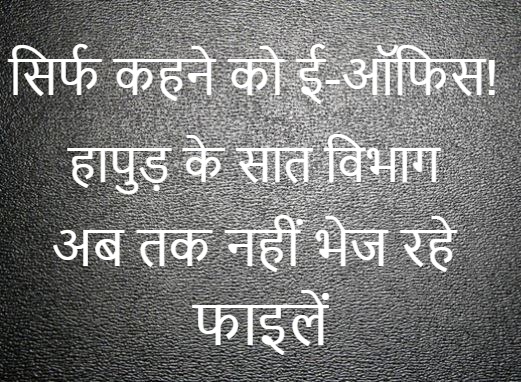 सिर्फ कहने को ई-ऑफिस!
हापुड़ के सात विभाग
अब तक नहीं भेज रहे
फाइलें